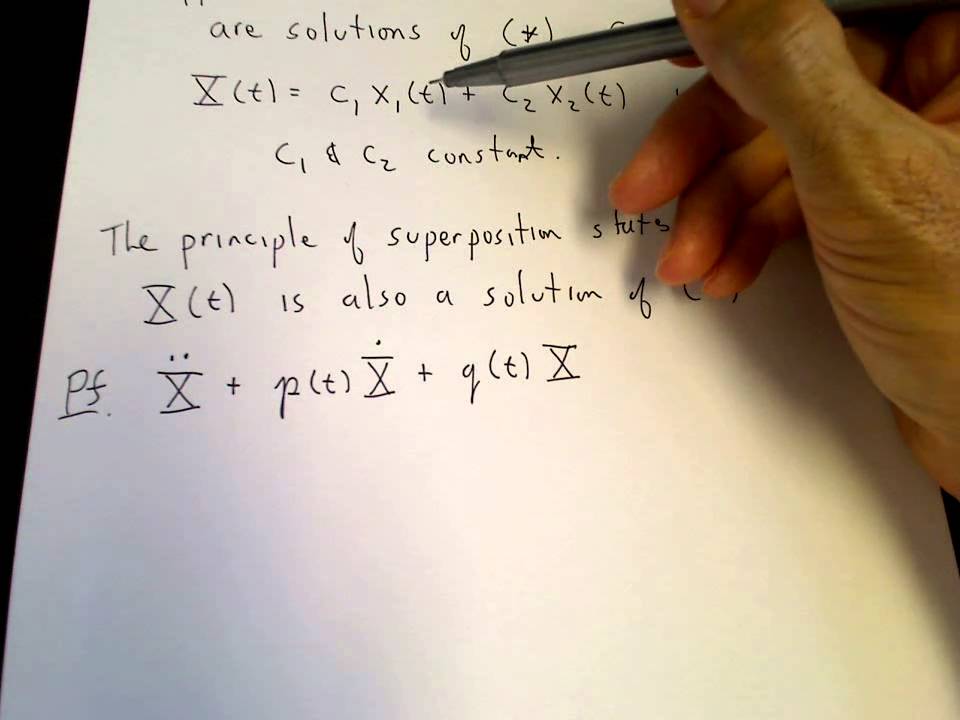 are solutions of (*)
X(t) = c₁ x₁(t) + c₂ x₂(t)
c₁ & c₂ constant.
The principle of superposition stats
X(t) is also a solution of (
Pf. Ẍ + p(t) Ẋ + q(t) X